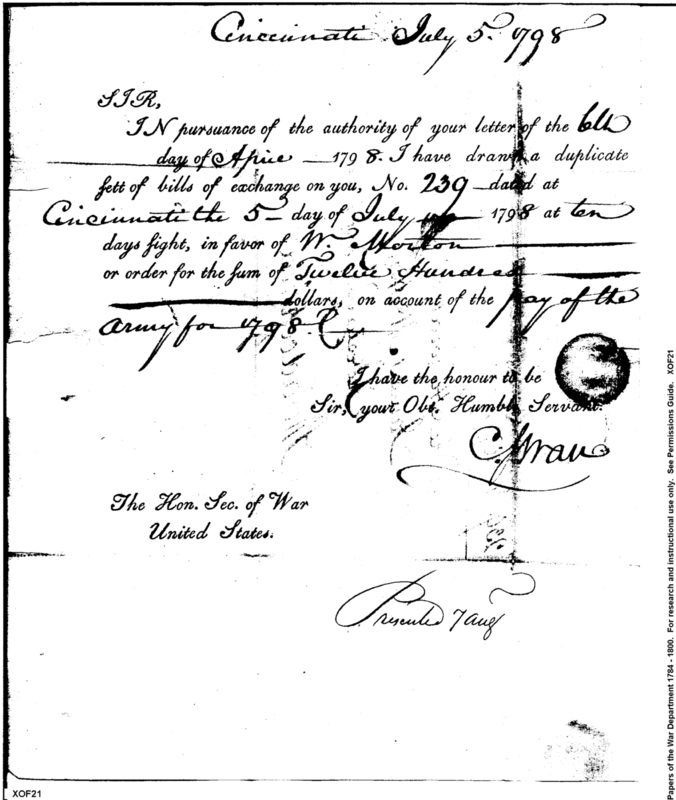 Cincinnati July 5. 1798
SIR,
IN pursuance of the authority of your letter of the 6th
day of April 1798. I have drawn a duplicate
sett of bills of exchange on you, No. 239 dated at
Cincinnati the 5 day of July 1798 at ten
days sight, in favor of W. Morton
or order for the sum of Twelve Hundred
dollars, on account of the pay of the
Army for 1798
I have the honour to be
Sir, your Obt. Humble Servant.
C.
The Hon. Sec. of War
United States.
Presented 7 Aug
XOF21
Papers of the War Department 1784 - 1800. For research and instructional use only. See Permissions Guide. XOF21